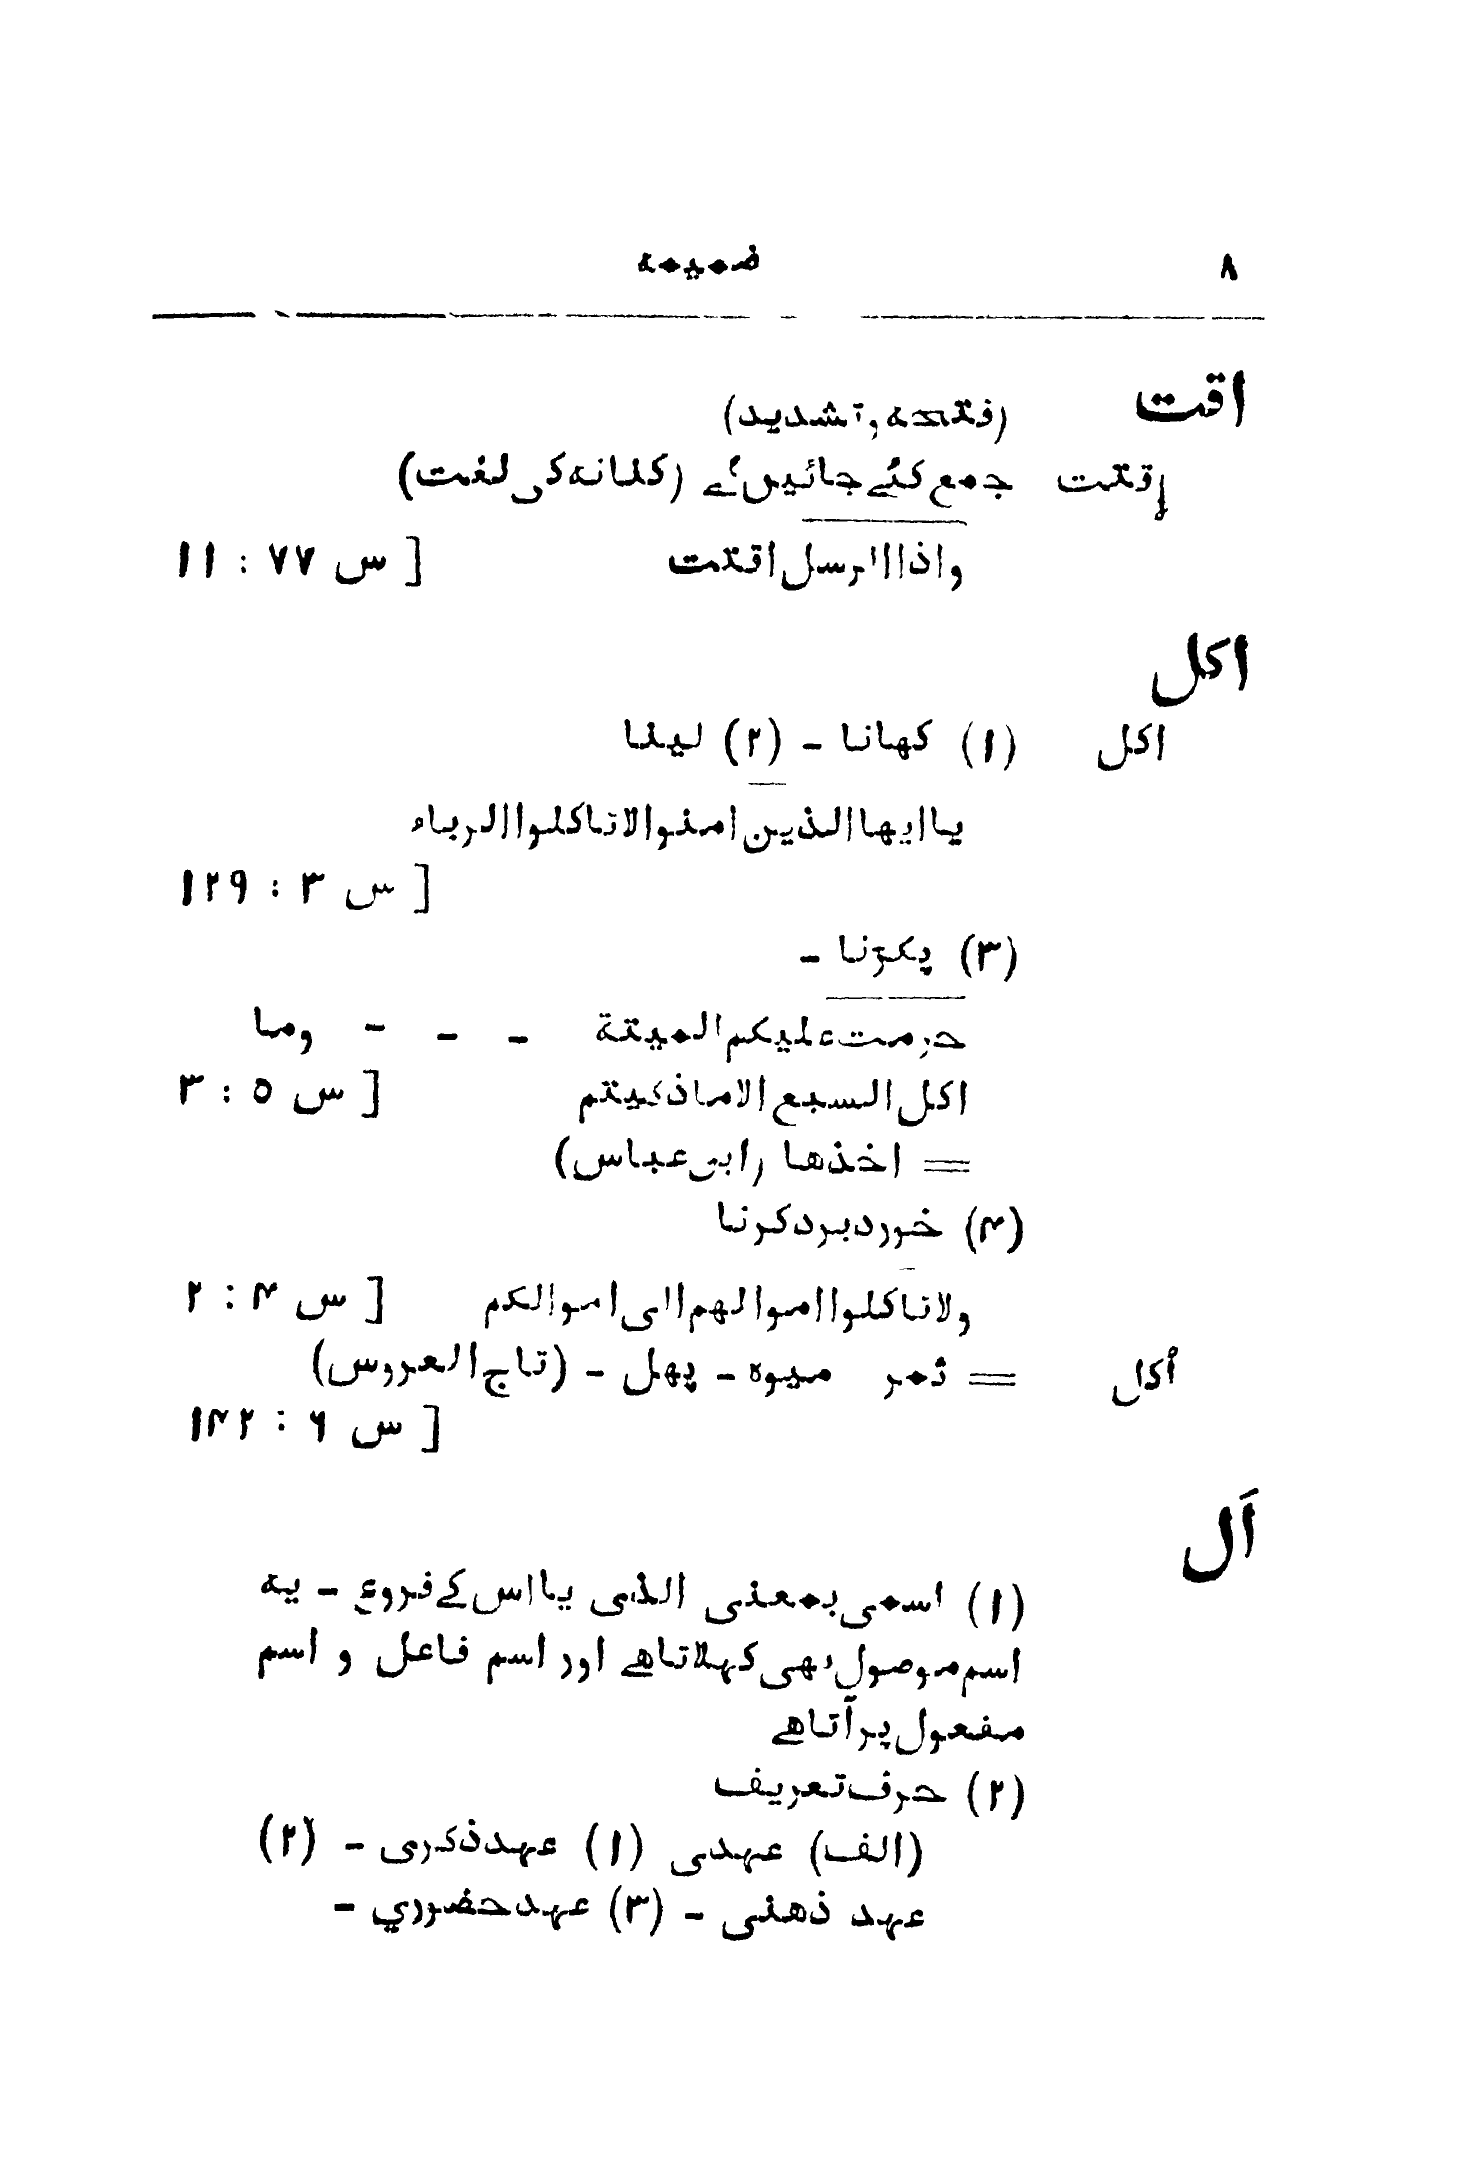 ۸ ضمیمہ
اقت
(فتحہ, تشدید)
اقتت جمع کئے جائیں گے (کنانہ کی لغت)
واذا الرسل اقتت [ س ۷۷ : ۱۱
اکل
اکل (۱) کھانا - (۲) لینا
یا ایھا الذین امنوا لا تاکلوا الرباء
[ س ۳ : ۱۲۹
(۳) پکڑنا -
حرمت علیکم المیتة - - - وما
اکل السبع الاما ذکیتم [ س ۵ : ۳
= اخذھا (ابن عباس)
(۴) خورد برد کرنا
ولا تاکلوا اموالھم الی اموالکم [ س ۴ : ۲
أکل = ثمر میوہ - پھل - (تاج العروس)
[ س ۶ : ۱۴۲
اَل
(۱) اسمی بمعنی الذی یا اس کے فروع - یہ
اسم موصول بھی کہلاتا ہے اور اسم فاعل و اسم
مفعول پر آتا ہے
(۲) حرف تعریف
(الف) عہدی (۱) عہد ذکری - (۲)
عہد ذھنی - (۳) عہد حضوري -